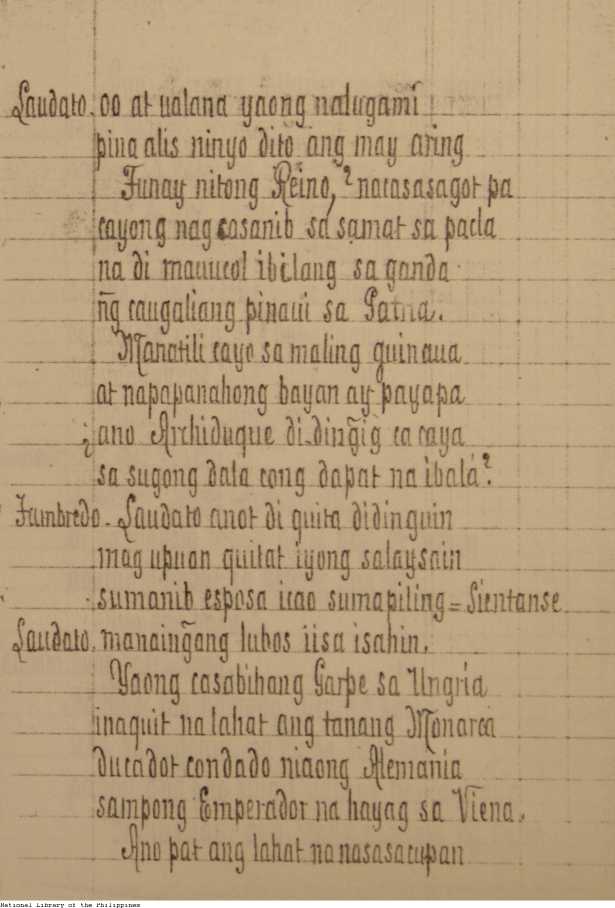 Laudato. oo at ualana yaong nalugami
pina alis ninyo dito ang may aring
Tunay nitong Reino, ? nacasasagot pa
cayong nag casanib sa samat sa pacla
na di mauucol ibilang sa ganda
ng̃ caugaliang pinaui sa Patria.
Manatili cayo sa maling guinaua
at napapanahong bayan ay payapa
¿ano Archiduque di ding̃ig ca caya
sa sugong dala cong dapat na ibalá?
Fambredo. Laudato anot di quita didinguin
mag upuan quitat iyong salaysain
sumanib esposa icao sumapiling = Sientanse
Laudato. manaing̃ang lubos iisa isahin.
Yaong casabihang Garpe sa Ungria
inaquit na lahat ang tanang Monarca
ducadot condado niaong Alemania
sampong Emperador na hayag sa Viena.
Ano pat ang lahat na nasasacupan
National Library of the Philippines